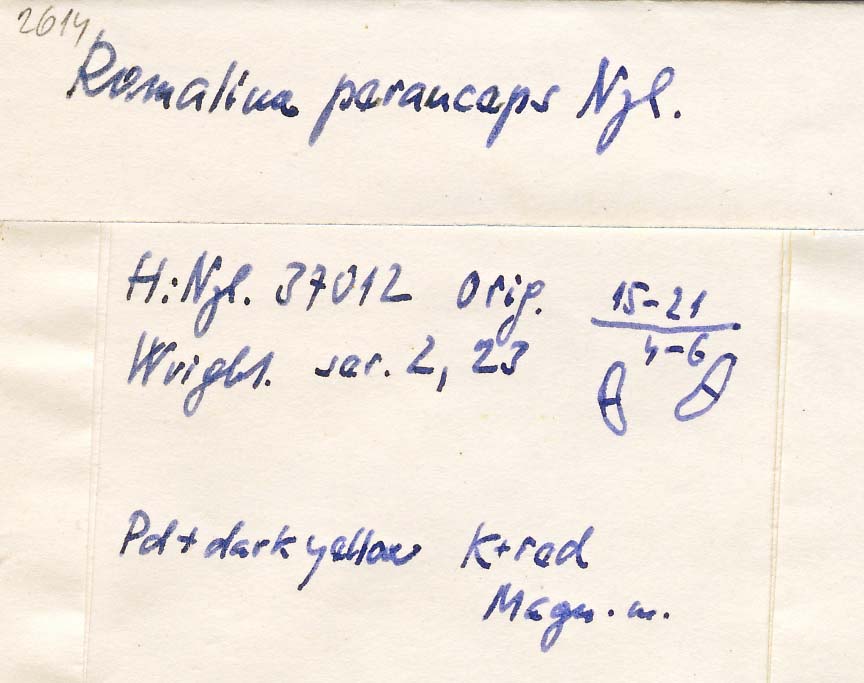 2614
Ramalina peranceps Nyl.
H:Nyl. 37012 Orig.
15-21
4-6
Wright. ser. 2, 23
Pd+ dark yellow K+red
Magn. m.